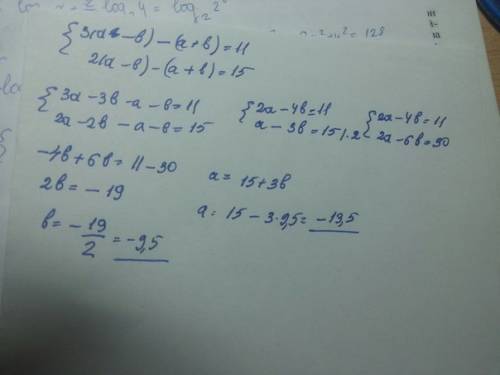 log₂ 4 = log₂ 2
= 128
{3(a - b) - (a + b) = 11
2(a - b) - (a + b) = 15
{3a - 3b - a - b = 11
2a - 2b - a - b = 15
{2a - 4b = 11
a - 3b = 15 |·2
{2a - 4b = 11
2a - 6b = 30
-4b + 6b = 11 - 30
2b = -19
b = -19/2 = -9,5
a = 15 + 3b
a = 15 - 3·9,5 = -13,5